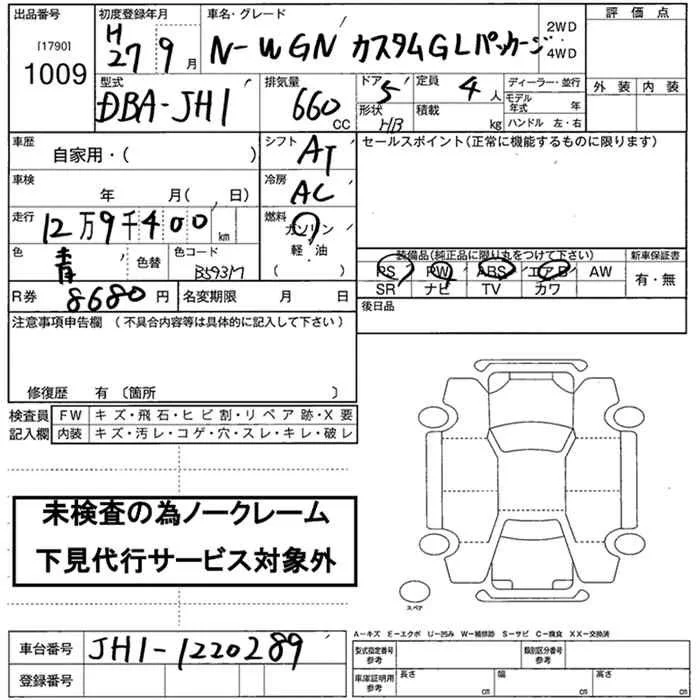 出品番号
[1790]
1009
初度登録年月
H
27 9 月
車名・グレード
N-WGN カスタムGLパッケージ
2WD
4WD
評価点
外装 内装
型式
DBA-JH1
排気量
660 CC
ドア 5
形状 HB
定員 4 人
積載 kg
ディーラー・並行
モデル年式 年
ハンドル 左・右
車歴 自家用・( )
シフト AT
セールスポイント(正常に機能するものに限ります)
車検 年 月( 、 日)
冷房 AC
走行 12万9千400 km
燃料
ガソリン
軽・油
( )
色 青 色替
色コード
B593M
装備品(純正品に限り丸をつけて下さい)
PS PW ABS エアB AW
SR ナビ TV カワ
新車保証書
有・無
R券 8680 円
名変期限 月 日
後日品
注意事項申告欄 (不具合内容等は具体的に記入して下さい)
修復歴 有 〔箇所 〕
検査員
記入欄
FW キズ・飛石・ヒビ割・リペア跡・X要
内装 キズ・汚レ・コゲ・穴・スレ・キレ・破レ
未検査の為ノークレーム
下見代行サービス対象外
スペア
A-キズ E-エクボ U-凹み W-補修跡 S-サビ C-腐食 XX-交換済
車台番号 JH1-1220289
登録番号
型式指定番号
参考
類別区分番号
参考
車庫証明用
参考
長さ cm
幅 cm
高さ cm